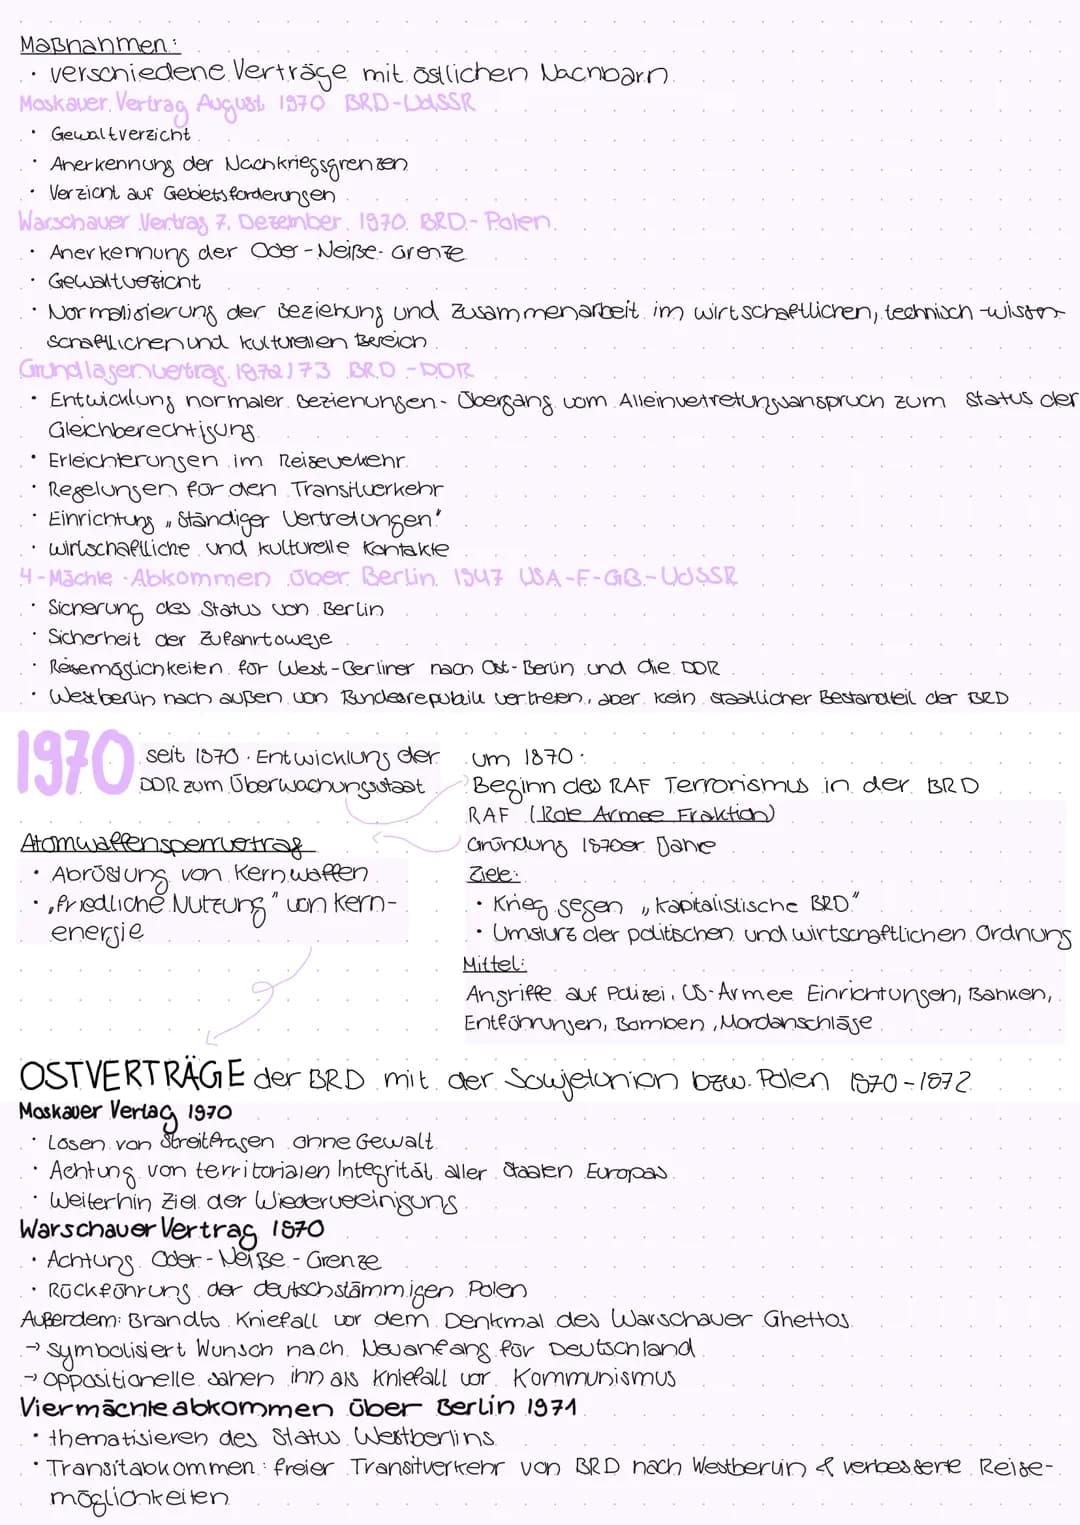 Maßnahmen:
• verschiedene Verträge mit östlichen Nachbarn
Moskauer Vertrag August 1970 BRD-UdSSR
• Gewaltverzicht
• Anerkennung der Nachkriegsgrenzen
• Verzicht auf Gebietsforderungen
Warschauer Vertrag 7. Dezember 1970 BRD - Polen
• Anerkennung der Oder-Neiße-Grenze
• Gewaltverzicht
• Normalisierung der Beziehung und Zusammenarbeit im wirtschaftlichen, technisch-wissen-
schaftlichen und kulturellen Bereich
Grundlagenvertrag 1972/73 BRD-DDR
• Entwicklung normaler Bezienungen - Übergang vom Alleinvertretungsanspruch zum Status der
Gleichberechtigung
• Erleichterungen im Reiseverkehr
• Regelungen für den Transitverkehr
• Einrichtung „Ständiger Vertretungen"
• wirtschaftliche und kulturelle Kontakte
4-Mächte-Abkommen über Berlin 1947 USA-F-GB-UdSSR
• Sicherung des Status von Berlin
• Sicherheit der Zufahrtswege
• Reisemöglichkeiten für West-Berliner nach Ost-Berlin und die DDR
• Westberlin nach außen von Bundesrepublik vertreten, aber kein staatlicher Bestandteil der BRD
1970 seit 1970 Entwicklung der
DDR zum Überwachungsstaat
Atomwaffensperrvertrag
• Abrüstung von Kernwaffen
• „friedliche Nutzung" von Kern-
energie
um 1970:
Beginn des RAF Terrorismus in der BRD
RAF (Rote Armee Fraktion)
Gründung 1970er Jahre
Ziele:
• Krieg gegen „kapitalistische BRD"
• Umsturz der politischen und wirtschaftlichen Ordnung
Mittel:
Angriffe auf Polizei, US-Armee Einrichtungen, Banken,
Entführungen, Bomben, Mordanschläge
OSTVERTRÄGE der BRD mit der Sowjetunion bzw. Polen 1970-1972
Moskauer Vertag 1970
• Lösen von Streitfragen ohne Gewalt
• Achtung von territorialen Integrität aller Staaten Europas
• Weiterhin Ziel der Wiedervereinigung
Warschauer Vertrag 1970
• Achtung Oder-Neiße-Grenze
• Rückführung der deutschstämmigen Polen
Außerdem: Brandts Kniefall vor dem Denkmal des Warschauer Ghettos
→ symbolisiert Wunsch nach Neuanfang für Deutschland
→ oppositionelle sahen ihn als Kniefall vor Kommunismus
Viermächteabkommen über Berlin 1971
• thematisieren des Status Westberlins
• Transitabkommen: freier Transitverkehr von BRD nach Westberlin & verbesserte Reise-
möglichkeiten